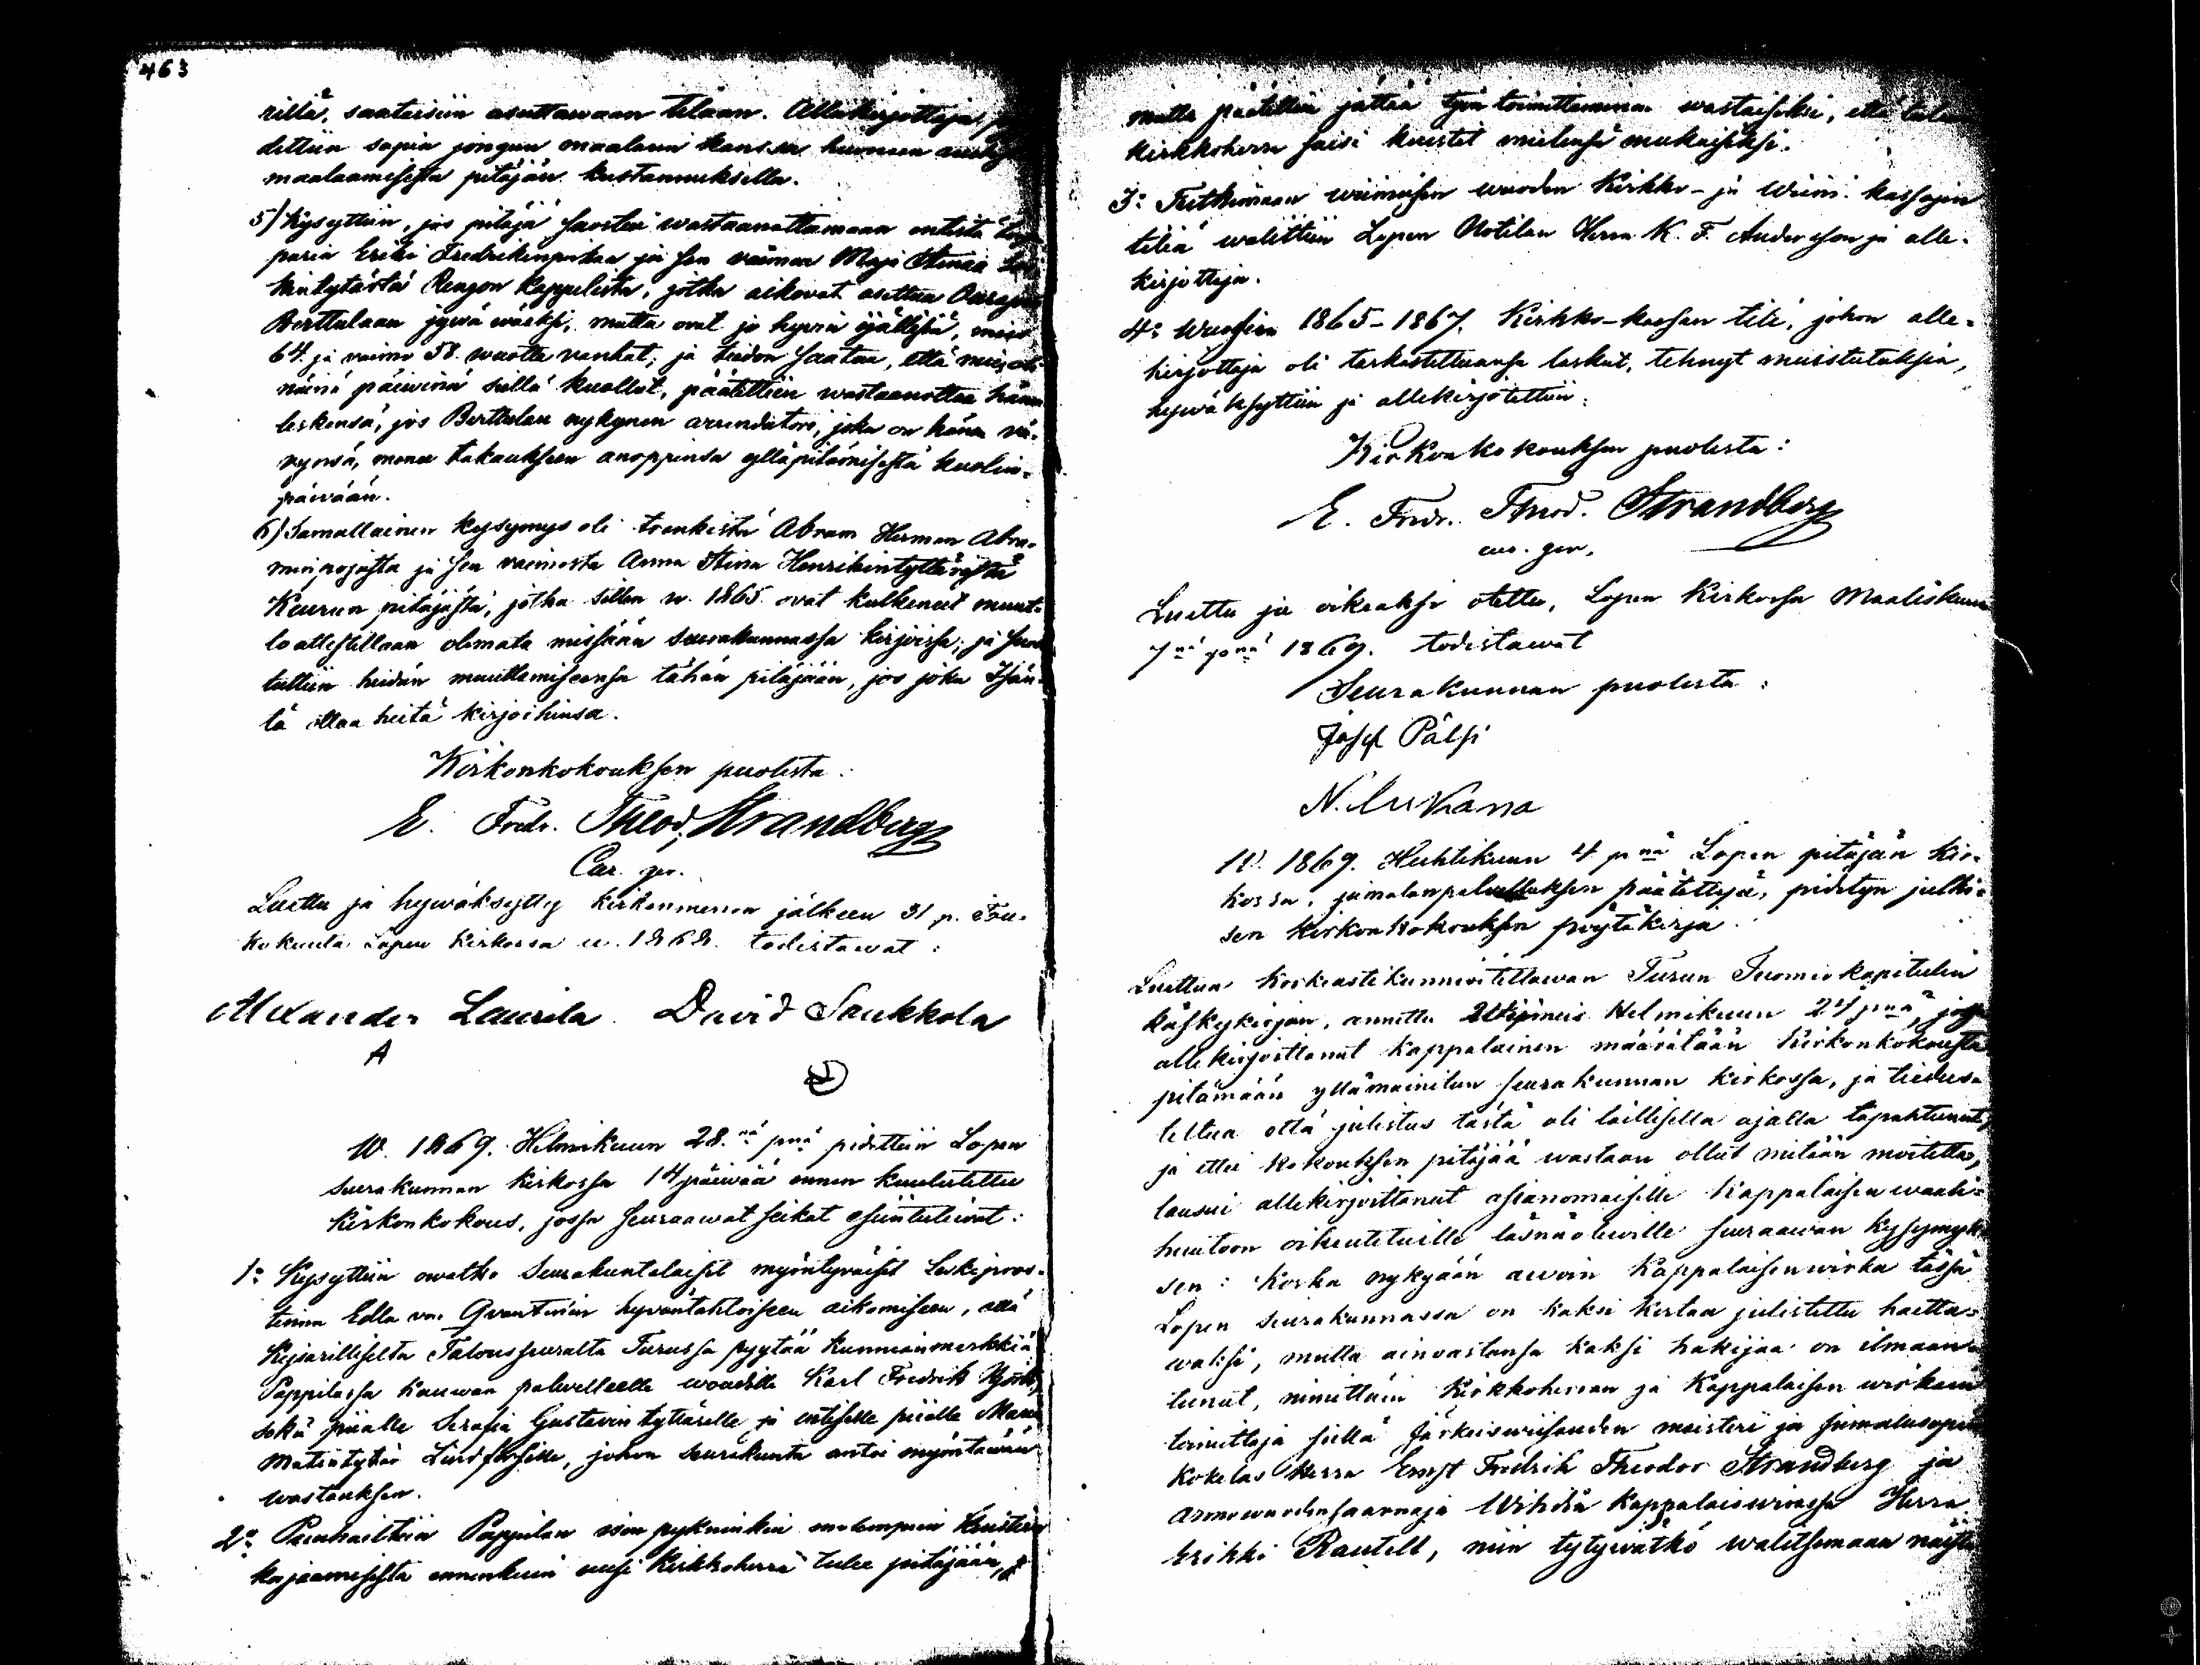 463
rillä, saateisiin asuttawaan tilaan. Allekirjottaja
dettiin sopia jongun maalarin kanssa huoneen
maalaamisesta pitäjän kustannuksella.
5) Kysyttiin, jos pitäjä suostui wastaanottamaan entistä
paria Erikki Fredrikinpoikaa ja sen vaimoa Maja Stinaa
kintytärtä Rengon kappelista, jotka aikovat asettua
Berttulaan jywä wäeksi, mutta ovat jo hywin ijällisiä, mies
64 ja vaimo 58 wuotta vanhat; ja tiedon saatua, että mies oli
näinä päiwinä siellä kuollut, päätettiin wastaanottaa hänen
leskensä, jos Berttulan nykynen arendatori, joka on hänen vä-
vynsä, menee takaukseen anoppinsa ylläpitämisestä kuolin-
päivään.
6) Samallainen kysymys oli trenkistä Abram Herman Abra-
minpojasta ja sen vaimosta Anna Stina Henrikintyttärestä
Keurun pitäjästä, jotka sitten w. 1865 ovat kulkeneet muut-
to attestillaan olematta missään seurakunnassa kirjoissa; ja suos-
tuttiin heidän muuttamiseensa tähän pitäjään, jos joku Isän-
tä ottaa heitä kirjoihinsa.
Kirkonkokouksen puolesta:
E. Fredr. Theod. Strandberg
Cur. ger.
Luettu ja hywäksytty kirkonmenon jälkeen 31 p. Tou-
kokuuta Lopen kirkossa w. 1868 todistawat:
Alexander Laurila. David Saukkola
A
W. 1869 Helmikuun 28.nä pnä pidettiin Lopen
seurakunnan kirkossa 14 päiwää ennen kuulutettu
Kirkonkokous, jossa seuraawat seikat esiintuliwat:
1:o Kysyttiin owatko Seurakuntalaiset myöntyväiset Leskiproos-
tinna Edla von Qvantenin hywäntahtoiseen aikomiseen, että
Keisarilliselta Talousseuralta Turussa pyytää kunnianmerkkiä
Pappilassa kauwan palwelleelle woudille Karl Fredrik
sekä piialle Serafia Gustavin tyttärelle ja entiselle piialle
Matintytär Lindforsille, johon seurakunta antoi myöntäwän
wastauksen.
2:o Pappilan
korjaamisesta ennenkuin uusi Kirkkoherra tulee pitäjään,
mutta päätettiin jättää työn toimittaminen wastaiseksi, että tulewa
kirkkoherra saisi kuistit mielensä mukaiseksi.
3:o Tutkimaan wiimeisen wuoden Kirkko- ja kassojen
tiliä walittiin Lopen Notilan Herra K. F. Andersson ja alle-
kirjottaja.
4:o Wuosien 1865-1867 Kirkko-kassan tili, johon alle-
kirjottaja oli tarkastettuansa laskut, tehnyt muistutuksia,
hywäksyttiin ja allekirjotettiin.
Kirkonkokouksen puolesta:
E. Fredr. Theod. Strandberg
cur. ger.
Luettu ja oikeaksi otettu, Lopen kirkossa Maaliskuun
7nä pnä 1869. todistawat
Seurakunnan puolesta:
Josef Pälsi
N. Uusikana
W. 1869. Huhtikuun 4 pnä Lopen pitäjän kir-
kossa, jumalanpalweluksen päätettyä, pidetyn julki-
sen Kirkonkokouksen pöytäkirja.
Luettua Korkeastikunnioitettawan Turun Tuomiokapitulin
käskykirjan, annettu wiimeis Helmikuun 24 pnä, jossa
allekirjoittanut kappalainen määrätään Kirkonkokousta
pitämään yllämainitun seurakunnan kirkossa, ja tiedus-
teltua että julistus tästä oli laillisella ajalla tapahtunut,
ja ettei kokouksen pitäjää wastaan ollut mitään moitetta,
lausui allekirjoittanut asianomaisille Kappalaisen waali-
huutoon oikeutetuille läsnäolewille seuraawan kysymyk-
sen: Koska nykyään awoin Kappalaisenwirka tässä
Lopen seurakunnassa on kaksi kertaa julistettu haetta-
waksi, mutta ainoastansa kaksi hakijaa on ilmaan-
tunut, nimittäin Kirkkoherran ja Kappalaisen wirkain
toimittaja siellä Järkeiswiisauden maisteri ja Jumalusopin
kokelas Herra Ernst Fredrik Theodor Strandberg ja
armowuodensaarnaaja Wihdin kappalaiswirassa Herra
Erikki Rautell, niin tytywätkö walitsemaan näistä